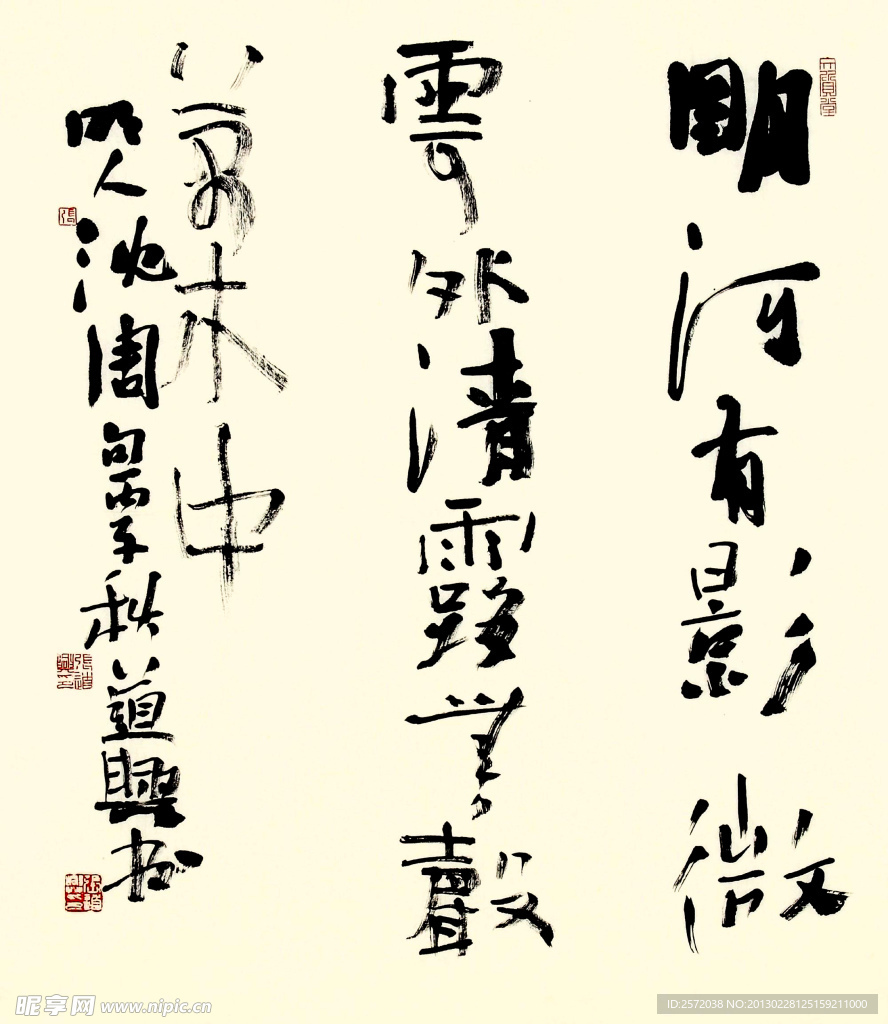 明河有影微
雲外清露無聲
萬木中
明人沈周句丙子秋道興書
昵享网 www.nipic.cn
ID:2572038 NO:20130228125159211000